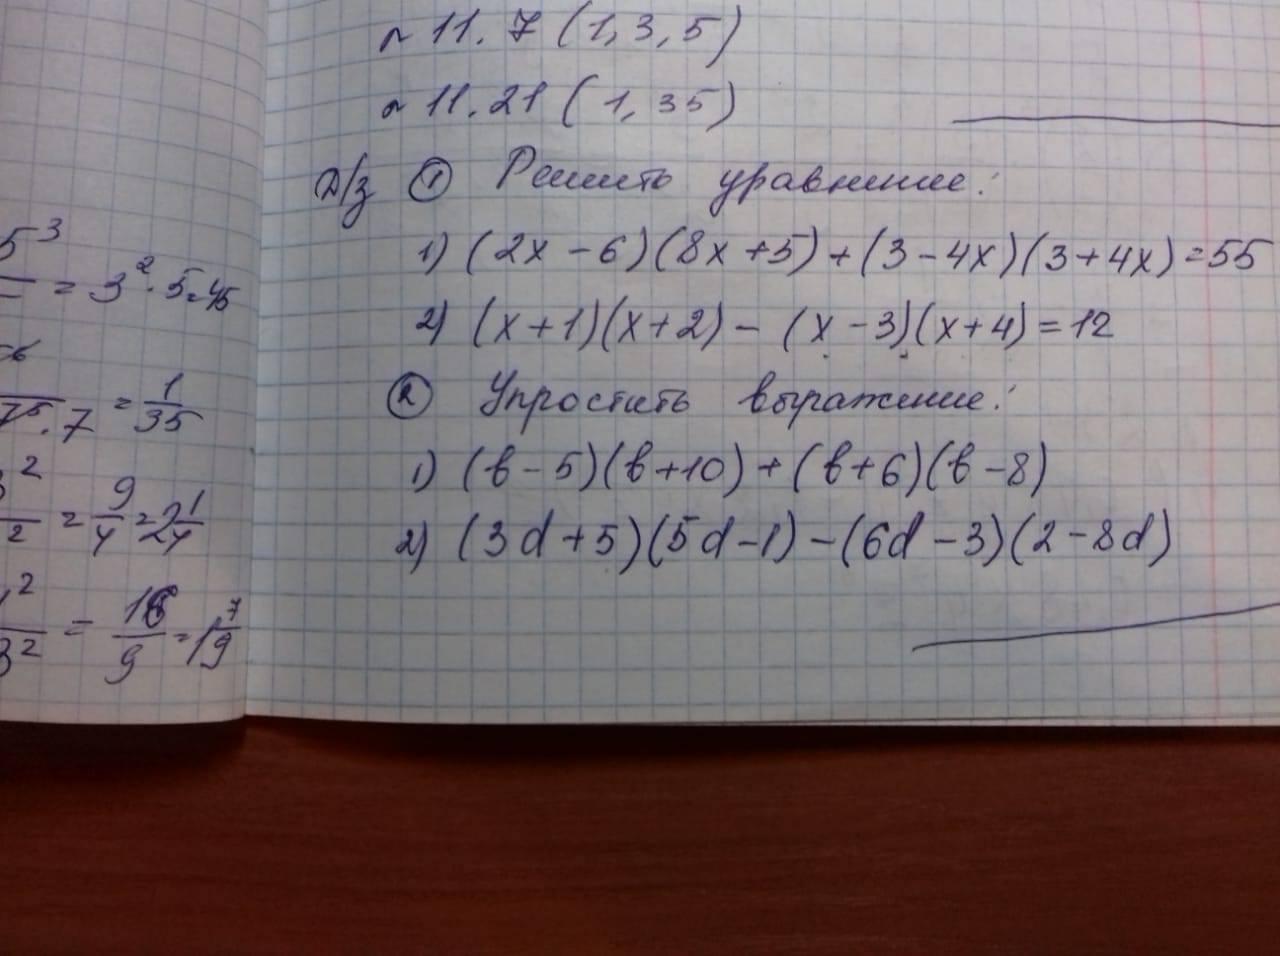 ~ 11.7 (1, 3, 5)
~ 11.21 (1, 35)
Д/з ① Решить уравнение:
1) (2x - 6)(8x + 5) + (3 - 4x)(3 + 4x) = 55
2) (x + 1)(x + 2) - (x - 3)(x + 4) = 12
② Упростить выражение:
1) (в - 5)(в + 10) + (в + 6)(в - 8)
2) (3d + 5)(5d - 1) - (6d - 3)(2 - 8d)
5³
— = 3² · 5 = 45
7⁵ · 7 = 1/35
² / 2 = 9/4 = 2 1/4
² / 3² = 16/9 = 1 7/9